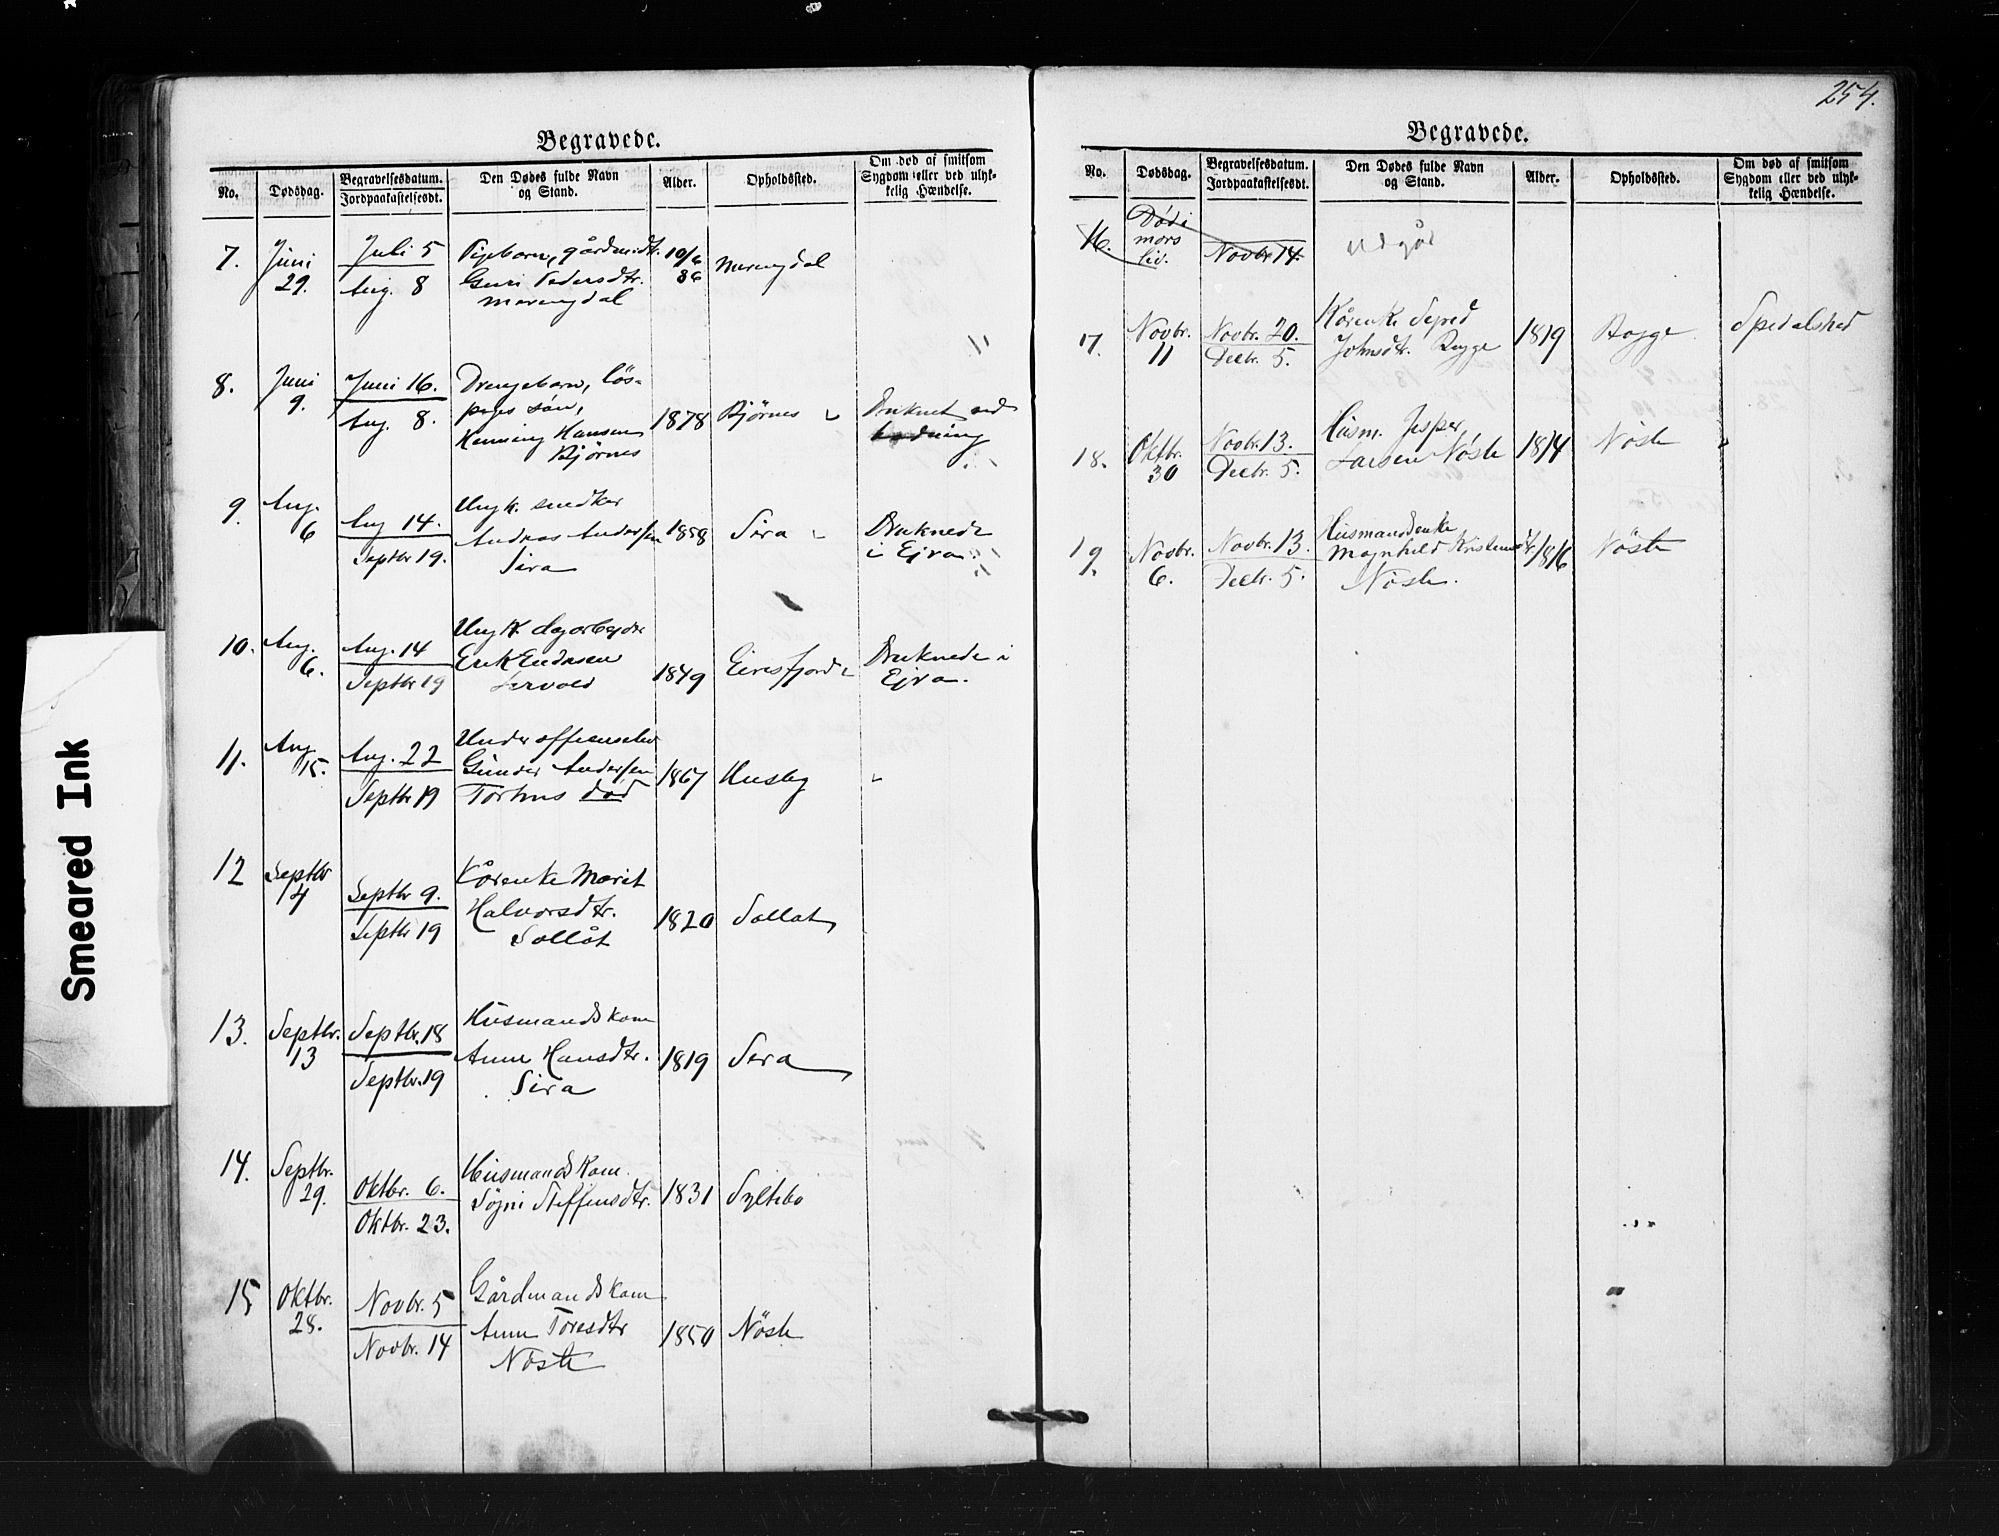 254.
Begravede.
No.
Dødsdag.
Begravelsesdatum.
Jordpaakastelsesdt.
Den Dødes fulde Navn
og Stand.
Alder.
Opholdssted.
Om død af smitsom
Sygdom eller ved ulyk-
kelig Hændelse.
7.
Juni
29.
Juli 5
Aug. 8
Pigebarn, gårdmdt.
Guri Pedersdtr.
Merengdal
10/6
86
Merengdal
8.
Juni
9.
Juni 16.
Aug. 8.
Drengebarn, løs-
piges søn,
Henning Hansen
Bjørnes
1878
Bjørnes
Druknet ved
badning
9.
Aug.
6
Aug 14.
Septbr 19.
Ungk. snedker
Andreas Andersen
Sira
1858
Sira
Druknede
i Ejra.
10.
Aug.
6.
Aug. 14
Septbr 19
Ungk. dagarbejder
Erik Endresen
1849
Eiresfjord
Druknede i
Ejra.
11.
Aug.
15.
Aug. 22
Septbr 19
Underofficerselev
Gunder Andersen
Torhus død
1867
Husby
12
Septbr
4
Septbr 9.
Septbr 19
Kårenke Marit
Halvorsdtr.
Sollåt
1820
Sollåt
13.
Septbr.
13
Septbr. 18
Septbr. 19
Husmandskone
Anne Hansdtr.
Sira
1819
Sira
14.
Septbr.
29.
Oktbr. 6.
Oktbr. 23.
Husmandskone
Søgni Steffensdtr.
1831
Syltebø
15
Oktbr.
28.
Novbr. 5
Novbr. 14
Gårdmandskone
Anne Toresdtr
Nøste
1850
Nøste
Begravede.
No.
Dødsdag.
Begravelsesdatum.
Jordpaakastelsesdt.
Den Dødes fulde Navn
og Stand.
Alder.
Opholdssted.
Om død af smitsom
Sygdom eller ved ulyk-
kelig Hændelse.
16.
Død i
mors
liv.
Novbr 14.
udgår
17.
Novbr.
11
Novbr. 20.
Decbr. 5.
Kårenke Sigrid
Johnsdtr. Bogge
1819
Bogge
Spedalshed
18.
Oktbr.
30
Novbr. 13.
Decbr. 5.
Husm. Jesper
Larsen Nøste
1814
Nøste
19.
Novbr.
6.
Novbr. 13.
Decbr. 5.
Husmandsenke
Magnhild Kristensdtr.
Nøste.
1816
Nøste
Smeared Ink